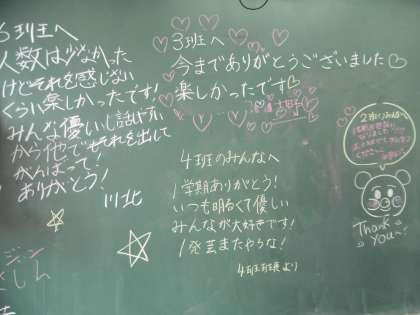 6班へ
人数は少なかった
けどそれを感じない
くらい楽しかったです!
みんな優しいし話しやすい
から他でもそれを出して
がんばって!
ありがとう!
川北
3班へ
今までありがとうございました♡
楽しかったです
4班のみんなへ
1学期ありがとう!
いつも明るくて優しい
みんなが大好きです!
1発芸またやろな!
4班班長より
2班のみんなへ
Thank
You